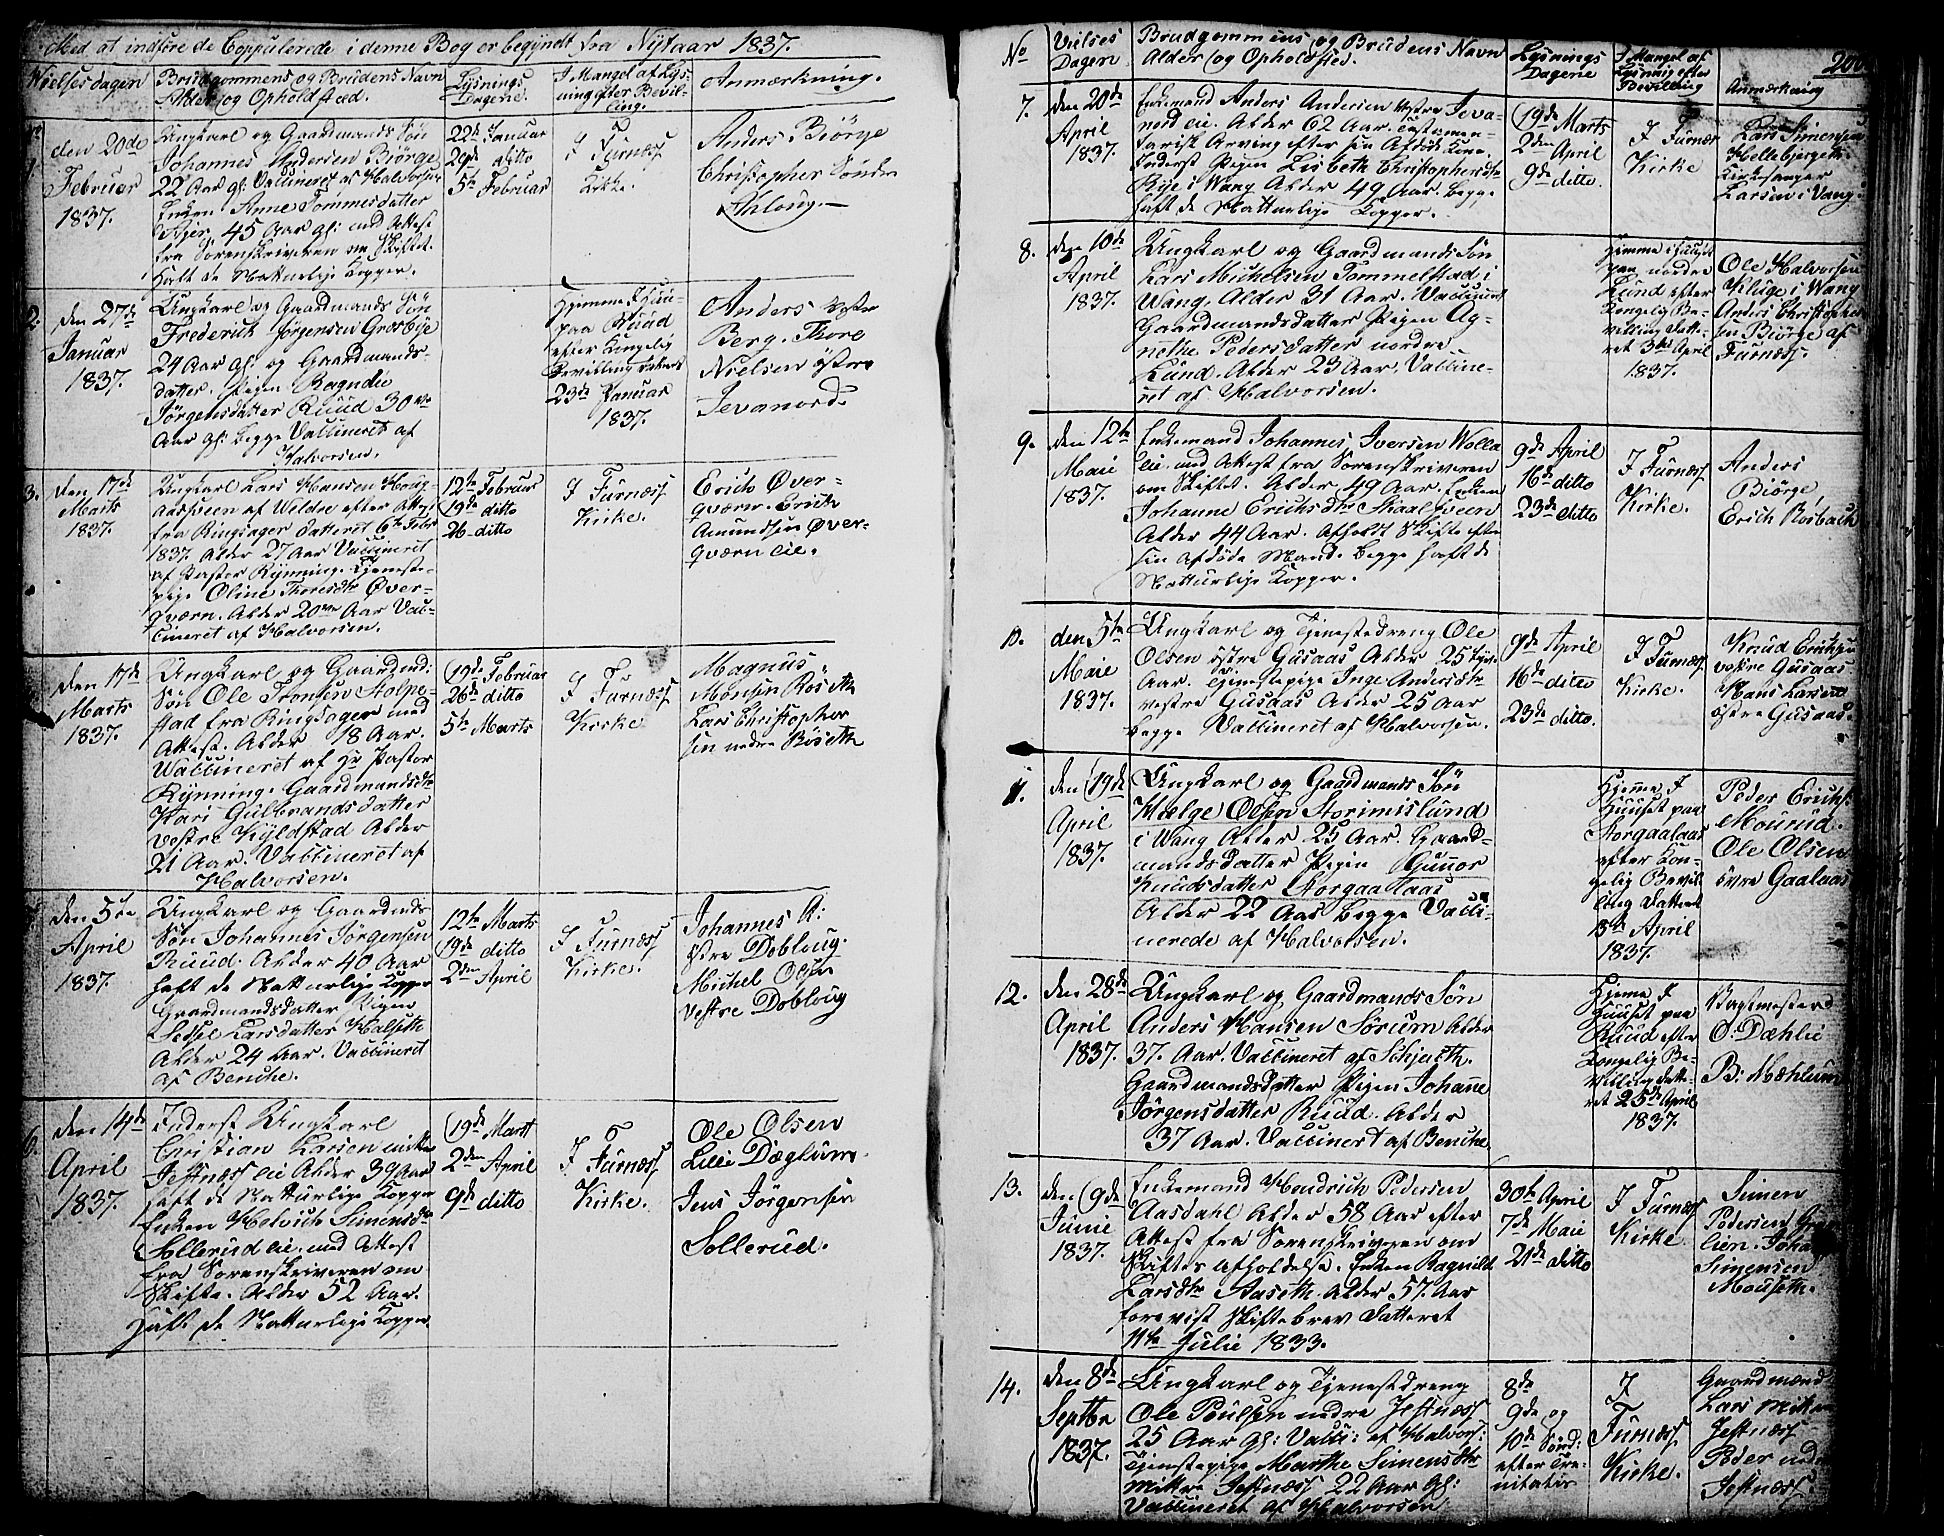 Med at indføre de Coppulerede i denne Bog er begÿndt fra Nÿtaar 1837.
Vielsesdagen
Brudgommens og Brudens Navn
Alder og Opholdsted.
Lysnings
Dagene.
I Mangel af Lys-
ning efter Bevil-
ling.
Anmærkning.
1.
den 20de
Februar
1837.
Ungkarl og Gaardmands Søn
Johannes Andersen Biørge
22 Aar gl: Vaccineret af Halvorsen
Enken Anne Tommesdatter
45 Aar gl: med Attest
fra Sorenskriveren om Skiftet.
Haft de Naturlige Kopper.
22de Januar
29de ditto
5te Februar
I Furnæss
Kirke.
Anders Biørge
Christopher Søndre
2.
den 27de
Januar
1837.
Ungkarl og Gaardmands Søn
Frederich Jørgensen
24 Aar gl: og Gaardmands-
datter Pigen Ragndie
Jörgensdatter Ruud 30
Aar gl: begge Vaccineret af
Halvorsen.
Hjemme I Huu-
paa Ruud
efter Kongelig
Bevilling
23de Januar
1837.
Anders
Berg. Thore
Nielsen östre
Jevanord.
3.
den 17de
Marts
1837.
Ungkarl Lars Hansen
af Weldre efter Attest
fra Ringsager Datteret 6te Febr
1837. Alder 27 Aar Vaccineret
af Pastor Rÿnning. Tjeneste-
pige Oline Thoresdtr Øver-
qværn. Alder 20 Aar Vac-
cineret af Halvorsen.
12te Februar
19de ditto
26 ditto
I Furnæss
Kirke.
Erich Øver-
qværn. Erich
Amundsen Øver-
qværn eie.
den 17de
Marts
1837.
Ungkarl og Gaardmd:
Søn Ole
stad fra Ringsager med
Attest. Alder 18 Aar.
Vaccineret af Hr Pastor
Rÿnning. Gaardmandsdtr
Kari Gulbrandsdatter
vestre Kÿldstad Alder
21 Aar. Vaccineret af
Halvorsen.
19de Februar
26de ditto
5te Marts
I Furnæss
Kirke
Magnus
Monsen Røseth
Lars Christopher
sen nedre Røseth
den 5te
April
1837.
Ungkarl og Gaardmds
Søn Johannes Jørgensen
Ruud. Alder 40 Aar
haft de Naturlige Kopper
Gaardmandsdatter Pigen
Sedsel Larsdatter Halseth
Alder 24 Aar. Vaccineret
af Benche.
12te Marts
19de ditto
2den April
I Furnæss
Kirke.
Johannes A:
Østre Dobloug.
Michel Olsen
Vestre Dobloug
6.
den 14de
April
1837.
Inderst Ungkarl
Christian Larsen
Jestnæss eie Alder 39 Aar
haft de Naturlige Kopper
Enken Helvich Simensdtr
Sollerud eie, med Attest
fra Sorenskriveren om
Skifte. Alder 52 Aar.
Haft de Naturlige Kopper.
19de Martt
2den April
9de ditto
I Furnæss
Kirke.
Ole Olsen
Lille Dæglum.
Jens Jörgensen
Sollerud.
No
Vielses
Dagen
Brudgommens og Brudens Navn
Alder og Opholdsted.
Lysnings
Dagene
I Mangel af
Lysning efter
Bevilling
Anmærkning
7.
den 20de
April
1837.
Enkemand Anders Andersen vestre Jeva-
nord eie. Alder 62 Aar. Testamen-
tarisk Arving efter sin Afdøde Kone.
Inderst Pigen Lisbeth Christophersdtr
Rÿe i Wang Alder 49 Aar. Begge
haft de Natturlige Kopper.
19de Marts
2den April
9de ditto.
I Furnæs
Kirke
Lars Simensen
Hellebjerget.
Kirkesanger
Larsen i Vang.
8.
den 10de
April
1837.
Ungkarl og Gaardmands Søn
Lars Michelsen Tommelstad i
Wang, Alder 31 Aar. Vaccineret
Gaardmandsdatter Pigen Ag-
nethe Pedersdatter nordre
Lund. Alder 23 Aar. Vaccine-
ret af Halvorsen.
Hjemme i Huuset
paa nordre
Lund efter
Kongelig Be-
villing Datte-
ret 3die April
1837.
Ole Halvorsen
i Wang
Anders Christopher-
sen Biörge af
Furnæss.
9.
den 12te
Maie
1837.
Enkemand Johannes Iversen Wolla
eie, med Attest fra Sorenskriveren
om Skiftet. Alder 49 Aar. Enken
Johanne Erichsdtr Skaalsveen
Alder 44 Aar. Afholdt Skifte efter
sin afdøde Mand. Begge haft de
Natturlige Kopper.
9de April
16de ditto
23de ditto
I Furnæss
Kirke.
Anders
Biörge,
Erich Rosbach
10.
den 5te
Maie
1837.
Ungkarl og Tjenestedreng Ole
Olsen östre Gusaas Alder 25
Aar. Tjenestepige Inge Andersdtr
vestre Gusaas Alder 25 Aar
begge Vaccineret af Halvorsen.
9de April
16de ditto
23de ditto.
I Furnæss
Kirke.
Knud Erichsen
vestre Gusaas
Hans Larsen
östre Gusaas.
11.
den 19de
April
1837.
Ungkarl og Gaardmands Søn
Helge Olsen Storimislund
i Wang Alder 25 Aar. Gaard-
mandsdatter Pigen Gunnor
Knudsdatter Storgaalaas
Alder 22 Aar begge Vacci-
nerede af Halvorsen.
Hjemme I
Huuset paa
Storgaalaas
efter Kon-
gelig Bevil-
ling Datteret
13de April
1837.
Peder Erichs:
Mourud.
Ole Olsen
övre Gaalaas
12.
den 28de
April
1837.
Ungkarl og Gaardmands Søn
Anders Hansen Sörum Alder
37. Aar. Vaccineret af Schjerth.
Gaardmandsdatter Pigen Johanne
Jörgensdatter Ruud. Alder
37 Aar. Vaccineret af Benche
Hjemme I
Huuset paa
Ruud efter
Kongelig Be-
villing Datte-
ret 25de April
1837.
Vagtmester
O. Dæhlie
B. Mæhlum
13.
den 9de
Junie
1837.
Enkemand Hendrich Pedersen
Aasdahl Alder 58 Aar efter
Attest fra Sorenskriveren om
Skiftets afholdelse. Enken Ragnild
Larsdtr Aaseth. Alder 57. Aar
forevist Skiftebrev Datteret
11te Julie 1833.
30te April
7de Maie
21de ditto
I Furnæss
Kirke
Simen
Pedersen
lien. Johan
Simensen
Mouseth.
14.
den 8de
Septbr
1837.
Ungkarl og Tjenestdreng
Ole Poulsen nedre Jestnæss
25 Aar gl: Vacci: af Halvors:
Tjenstepige Marthe Simensdtr
mittre Jestnæss 22 Aar gl:
Vaccineret af Halvorsen
8de
9de og
10de Sønd:
efter Tre-
nitatis
I
Furnæss
Kirke.
Gaardmænd
Lars
Jestnæss
Peder nedre
Jestnæss.